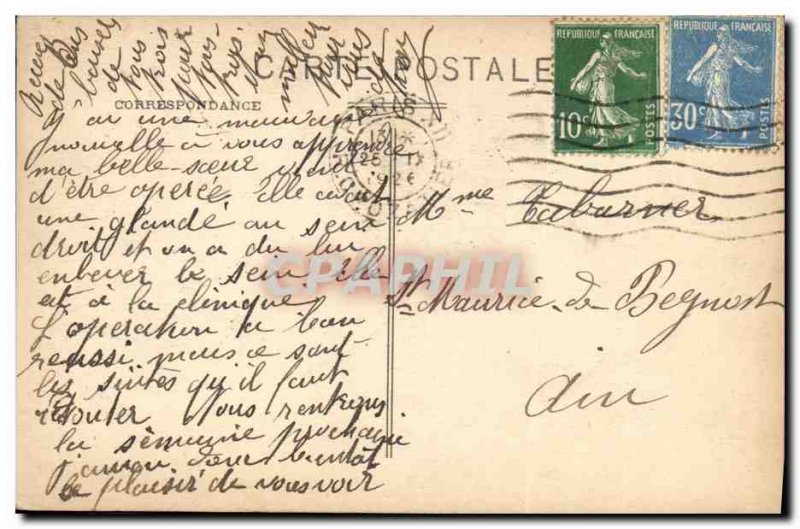 CARTE POSTALE
CORRESPONDANCE
J'ai une mauvaise
nouvelle à vous apprendre
ma belle-sœur vient
d'être operée. Elle avait
une glande au sein
droit et on a du lui
enlever le sein Elle
est à la clinique
L'operation a bien
reussi mais ce sont
les suites qu'il faut
redouter Nous rentrons
la semaine prochaine
j'aurai donc bientôt
le plaisir de vous voir
Recevez
de bons
baisers
de
nous
trois
pour
vous
REPUBLIQUE FRANÇAISE
10c
POSTES
REPUBLIQUE FRANÇAISE
30c
POSTES
PARIS
25 IX
1926
Mme Tabarner
St Maurice de Beynost
Ain
CPAPHIL